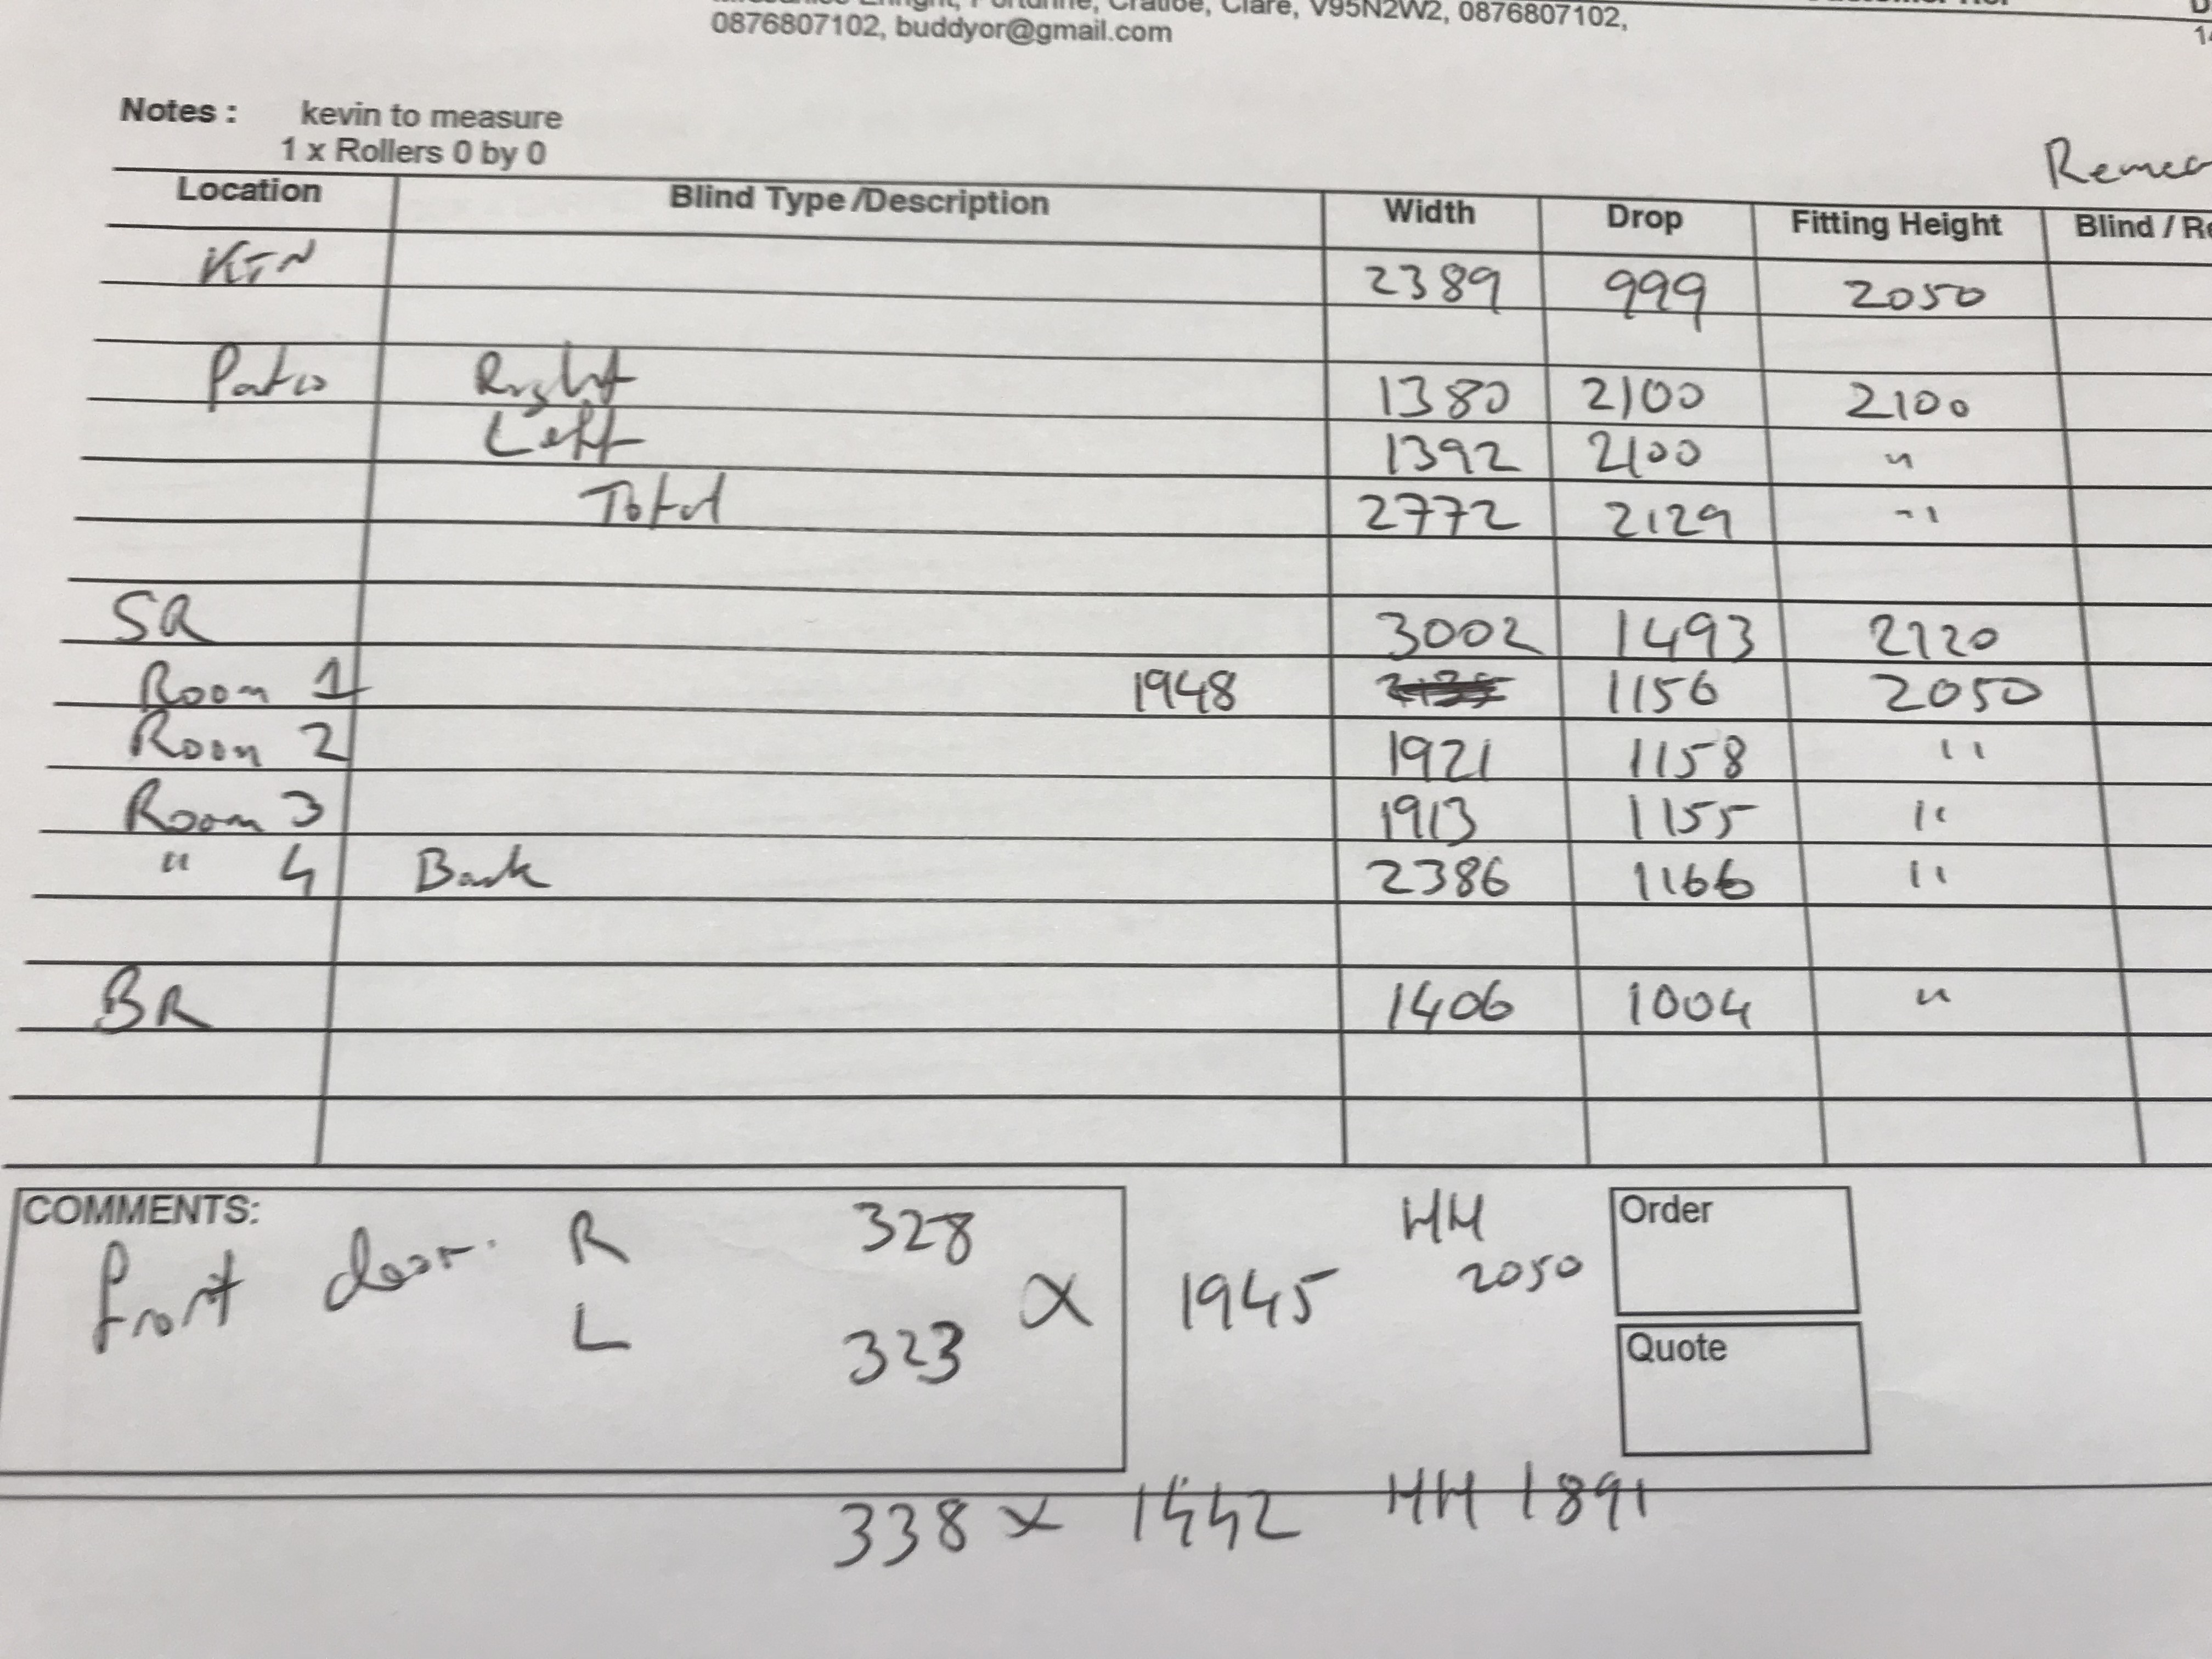 Cratloe, Clare, V95N2W2, 0876807102,
0876807102, buddyor@gmail.com
Notes : kevin to measure
1 x Rollers 0 by 0
Location Blind Type /Description Width Drop Fitting Height Blind / Re
KTN 2389 999 2050
Patio Right 1380 2100 2100
Left 1392 2100 "
Total 2772 2129 "
SR 3002 1493 2120
Room 1 1948 1156 2050
Room 2 1921 1158 "
Room 3 1913 1155 "
" 4 Back 2386 1166 "
BR 1406 1004 "
COMMENTS:
front door. R 328 X 1945 HH 2050
L 323
Order
Quote
338 x 1442 HH 1891